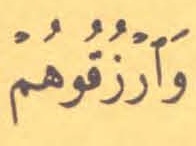 وَٱرۡزُقُوهُمۡ